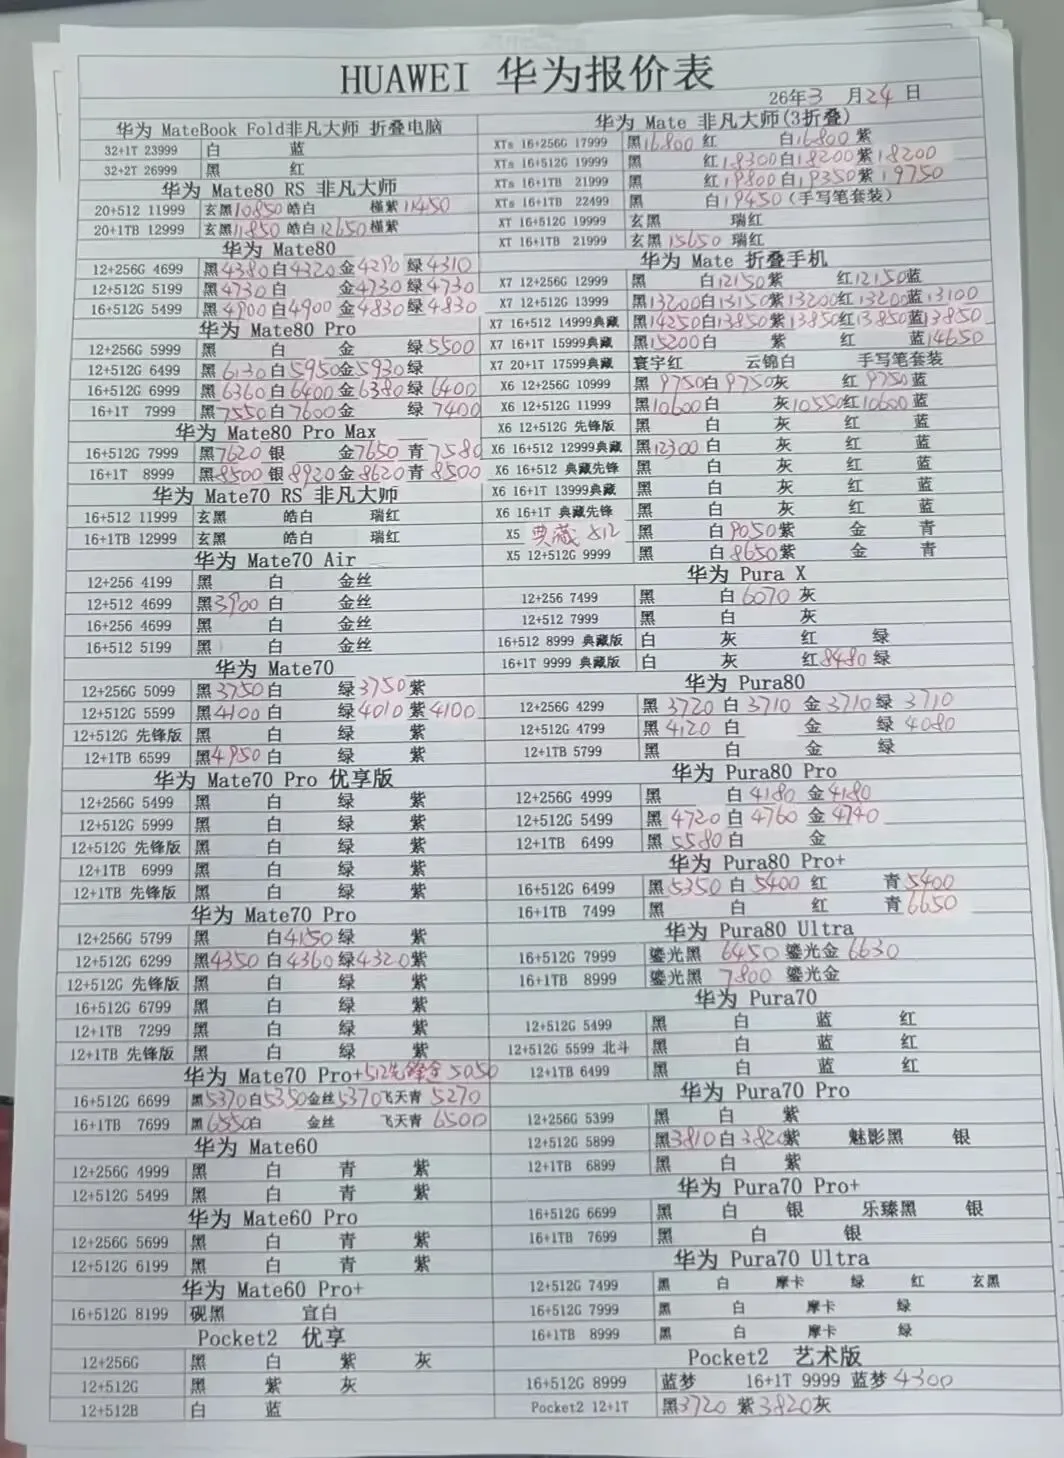 HUAWEI 华为报价表
26年3 月24 日
华为 MateBook Fold非凡大师 折叠电脑
32+1T 23999 白 蓝
32+2T 26999 黑 红
华为 Mate80 RS 非凡大师
20+512 11999 玄黑10850 皓白 槿紫11450
20+1TB 12999 玄黑11850 皓白12650槿紫
华为 Mate80
12+256G 4699 黑4380白4320金4290绿4310
12+512G 5199 黑4730白 金4730绿4730
16+512G 5499 黑4900白4900金4830绿4830
华为 Mate80 Pro
12+256G 5999 黑 白 金 绿5500
12+512G 6499 黑6130白5950金5930绿
16+512G 6999 黑6360白6400金6380绿6400
16+1T 7999 黑7550白7600金 绿7400
华为 Mate80 Pro Max
16+512G 7999 黑7620银 金7650青7580
16+1T 8999 黑8500银8920金8620青8500
华为 Mate70 RS 非凡大师
16+512 11999 玄黑 皓白 瑞红
16+1TB 12999 玄黑 皓白 瑞红
华为 Mate70 Air
12+256 4199 黑 白 金丝
12+512 4699 黑3900白 金丝
16+256 4699 黑 白 金丝
16+512 5199 黑 白 金丝
华为 Mate70
12+256G 5099 黑3750白 绿3750紫
12+512G 5599 黑4100白 绿4010紫4100
12+512G 先锋版 黑 白 绿 紫
12+1TB 6599 黑4950白 绿 紫
华为 Mate70 Pro 优享版
12+256G 5499 黑 白 绿 紫
12+512G 5999 黑 白 绿 紫
12+512G 先锋版 黑 白 绿 紫
12+1TB 6999 黑 白 绿 紫
12+1TB 先锋版 黑 白 绿 紫
华为 Mate70 Pro
12+256G 5799 黑 白4150绿 紫
12+512G 6299 黑4350白4360绿4320紫
12+512G 先锋版 黑 白 绿 紫
16+512G 6799 黑 白 绿 紫
12+1TB 7299 黑 白 绿 紫
12+1TB 先锋版 黑 白 绿 紫
华为 Mate70 Pro+512先锋金 5050
16+512G 6699 黑5370白5350金丝5370飞天青 5270
16+1TB 7699 黑6550白 金丝 飞天青 6500
华为 Mate60
12+256G 4999 黑 白 青 紫
12+512G 5499 黑 白 青 紫
华为 Mate60 Pro
12+256G 5699 黑 白 青 紫
12+512G 6199 黑 白 青 紫
华为 Mate60 Pro+
16+512G 8199 砚黑 宜白
Pocket2 优享
12+256G 黑 白 紫 灰
12+512G 黑 紫 灰
12+512B 白 蓝
华为 Mate 非凡大师(3折叠)
XTs 16+256G 17999 黑16800 红 白16800 紫
XTs 16+512G 19999 黑 红18300白18200紫18200
XTs 16+1TB 21999 黑 红19800白19350紫19750
XTs 16+1TB 22499 黑 白19450(手写笔套装)
XT 16+512G 19999 玄黑 瑞红
XT 16+1TB 21999 玄黑15650 瑞红
华为 Mate 折叠手机
X7 12+256G 12999 黑 白12150紫 红12150蓝
X7 12+512G 13999 黑13200白13150紫13200红13200蓝13100
X7 16+512 14999典藏 黑14250白13850紫13850红13850蓝13850
X7 16+1T 15999典藏 黑15200白 紫 红 蓝14650
X7 20+1T 17599典藏 寰宇红 云锦白 手写笔套装
X6 12+256G 10999 黑9750白9750灰 红9750蓝
X6 12+512G 11999 黑10600白 灰10550红10600蓝
X6 12+512G 先锋版 黑 白 灰 红 蓝
X6 16+512 12999典藏 黑12300白 灰 红 蓝
X6 16+512 典藏先锋 黑 白 灰 红 蓝
X6 16+1T 13999典藏 黑 白 灰 红 蓝
X6 16+1T 典藏先锋 黑 白 灰 红 蓝
X5 典藏 512 黑 白9050紫 金 青
X5 12+512G 9999 黑 白8650紫 金 青
华为 Pura X
12+256 7499 黑 白6070灰
12+512 7999 黑 白 灰
16+512 8999 典藏版 白 灰 红 绿
16+1T 9999 典藏版 白 灰 红8480绿
华为 Pura80
12+256G 4299 黑 3720 白 3710 金3710绿 3710
12+512G 4799 黑 4120 白 金 绿 4080
12+1TB 5799 黑 白 金 绿
华为 Pura80 Pro
12+256G 4999 黑 白 4180 金4180
12+512G 5499 黑 4720 白 4760 金 4740
12+1TB 6499 黑 5580白 金
华为 Pura80 Pro+
16+512G 6499 黑5350 白 5400 红 青5400
16+1TB 7499 黑 白 红 青6650
华为 Pura80 Ultra
16+512G 7999 鎏光黑 6450 鎏光金 6630
16+1TB 8999 鎏光黑 7800 鎏光金
华为 Pura70
12+512G 5499 黑 白 蓝 红
12+512G 5599 北斗 黑 白 蓝 红
12+1TB 6499 黑 白 蓝 红
华为 Pura70 Pro
12+256G 5399 黑 白 紫
12+512G 5899 黑3810白3820紫 魅影黑 银
12+1TB 6899 黑 白 紫
华为 Pura70 Pro+
16+512G 6699 黑 白 银 乐臻黑 银
16+1TB 7699 黑 白 银
华为 Pura70 Ultra
12+512G 7499 黑 白 摩卡 绿 红 玄黑
16+512G 7999 黑 白 摩卡 绿
16+1TB 8999 黑 白 摩卡 绿
Pocket2 艺术版
16+512G 8999 蓝梦 16+1T 9999 蓝梦4300
Pocket2 12+1T 黑3720 紫3820灰